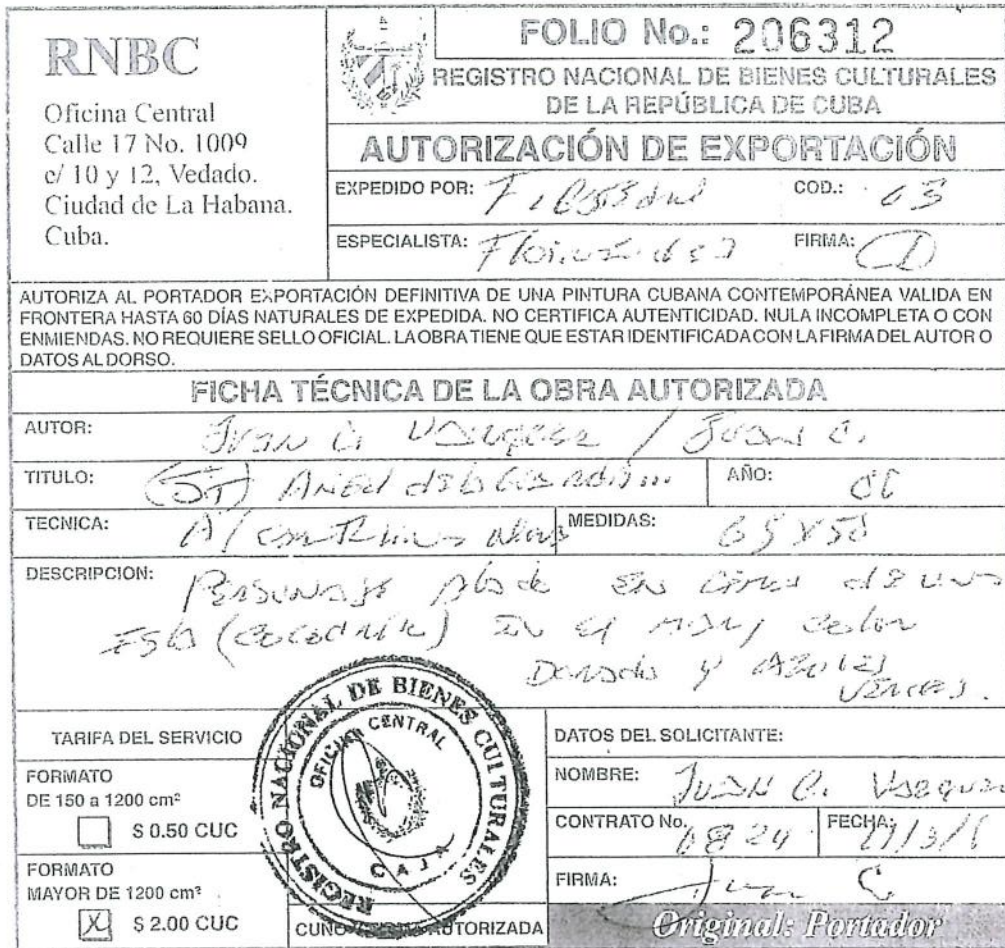 RNBC
Oficina Central
Calle 17 No. 1009
c/ 10 y 12, Vedado.
Ciudad de La Habana.
Cuba.
FOLIO No.: 206312
REGISTRO NACIONAL DE BIENES CULTURALES
DE LA REPÚBLICA DE CUBA
AUTORIZACIÓN DE EXPORTACIÓN
EXPEDIDO POR: COD.: 03
ESPECIALISTA: FIRMA:
AUTORIZA AL PORTADOR EXPORTACIÓN DEFINITIVA DE UNA PINTURA CUBANA CONTEMPORÁNEA VALIDA EN
FRONTERA HASTA 60 DÍAS NATURALES DE EXPEDIDA. NO CERTIFICA AUTENTICIDAD. NULA INCOMPLETA O CON
ENMIENDAS. NO REQUIERE SELLO OFICIAL. LA OBRA TIENE QUE ESTAR IDENTIFICADA CON LA FIRMA DEL AUTOR O
DATOS AL DORSO.
FICHA TÉCNICA DE LA OBRA AUTORIZADA
AUTOR: Juan C. / Juan C.
TITULO: (ST) AÑO:
TECNICA: A/ MEDIDAS: 65 x 50
DESCRIPCION: en cima de una
(cocodrilo) en el color
Dorado y Azules
verdes.
TARIFA DEL SERVICIO
FORMATO
DE 150 a 1200 cm²
$ 0.50 CUC
FORMATO
MAYOR DE 1200 cm²
X $ 2.00 CUC
REGISTRO NACIONAL DE BIENES CULTURALES
OFICINA CENTRAL
CAJA
CUÑO AUTORIZADA
DATOS DEL SOLICITANTE:
NOMBRE: Juan C.
CONTRATO No. FECHA:
FIRMA: Juan C.
Original: Portador